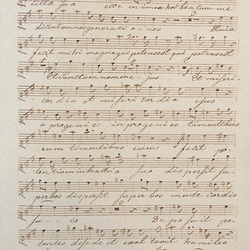 cilla sua ecce enim ex hoc beatam me
dicent omnes generationes Quia
fecit mihi magna qui potens est qui potens est
Et sanctum nomen ejus Et miseri
cordia et misericordia ejus
a progenie in progenies timentibus
eum timentibus eum fecit po
tentiam in brachio suo dispersit su
perbos dispersit superbos mente cordis
su is Deposuit po
tentes de sede et exal tavit humiles